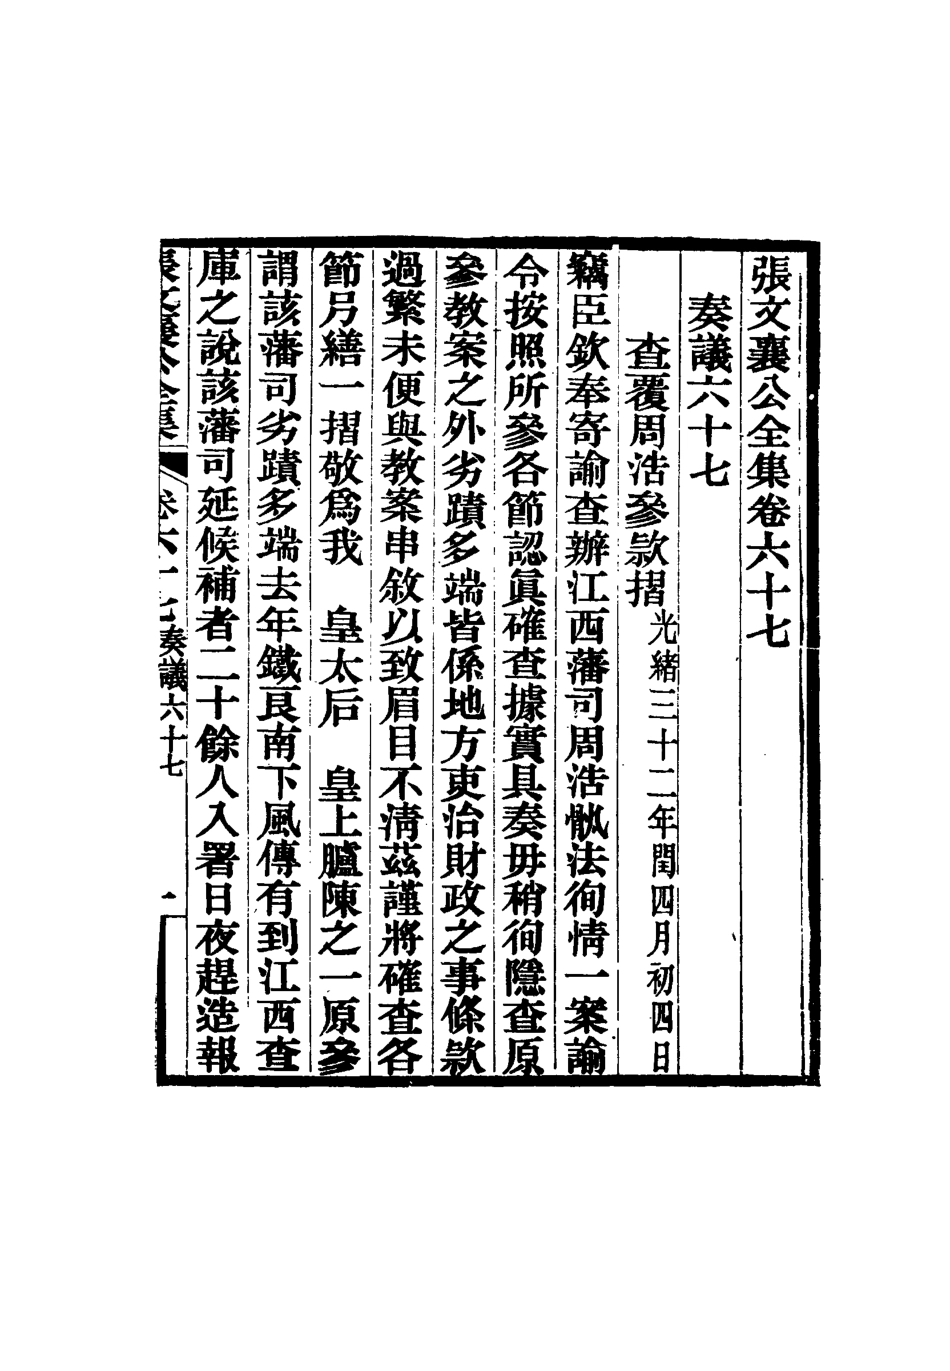 張文襄公全集卷六十七
奏議六十七
查覆周浩參款摺光緒三十二年閏四月初四日
竊臣欽奉寄諭查辦江西藩司周浩骫法徇情一案諭
令按照所參各節認眞確查據實具奏毋稍徇隱查原
參教案之外劣蹟多端皆係地方吏治財政之事條款
過繁未便與教案串敘以致眉目不清茲謹將確查各
節另繕一摺敬爲我 皇太后 皇上臚陳之一原參
謂該藩司劣蹟多端去年鐵良南下風傳有到江西查
庫之說該藩司延候補者二十餘人入署日夜趕造報
張文襄公全集 卷六十七 奏議六十七 一